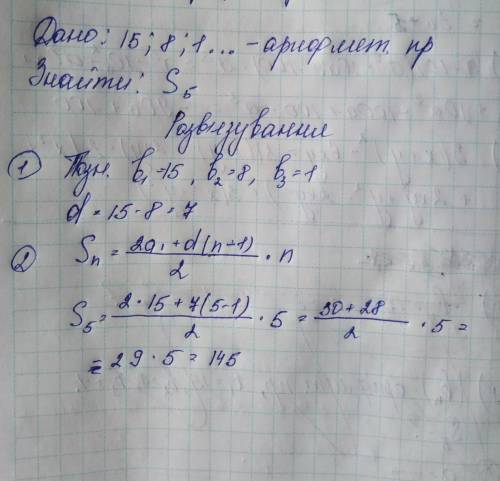 Дано: 15; 8; 1... - арифмет. пр
Знайти: S₅
Розвязування
① Позн. b₁=15, b₂=8, b₃=1
d = 15-8 = 7
② Sₙ = (2a₁ + d(n-1))/2 · n
S₅ = (2·15 + 7(5-1))/2 · 5 = (30+28)/2 · 5 =
= 29·5 = 145